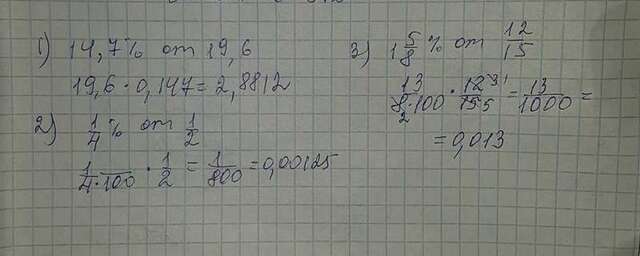 1) 14,7% от 19,6
19,6 · 0,147 = 2,8812
2) 1/4 % от 1/2
1/(4·100) · 1/2 = 1/800 = 0,00125
3) 1 5/8 % от 12/15
13/(8·100) · 12/15 = 13/1000 =
2 3 1 5
= 0,013